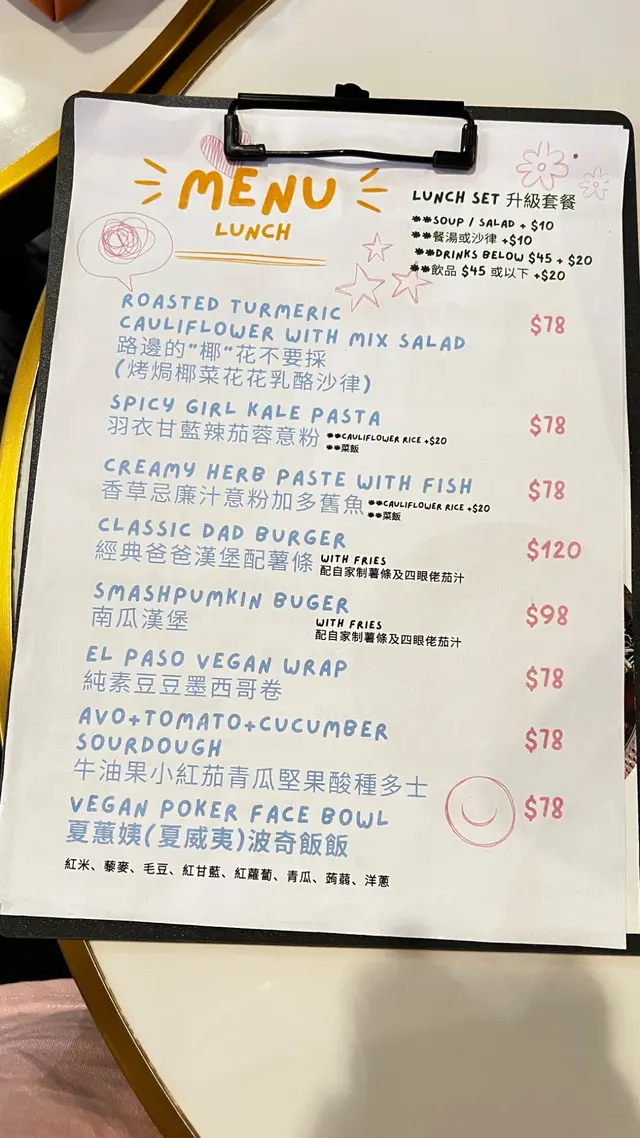 MENU
LUNCH
LUNCH SET 升級套餐
**SOUP / SALAD + $10
**餐湯或沙律 +$10
**DRINKS BELOW $45 + $20
**飲品 $45 或以下 +$20
ROASTED TURMERIC
CAULIFLOWER WITH MIX SALAD $78
路邊的"椰"花不要採
(烤焗椰菜花花乳酪沙律)
SPICY GIRL KALE PASTA $78
羽衣甘藍辣茄蓉意粉 **CAULIFLOWER RICE +$20
**菜飯
CREAMY HERB PASTE WITH FISH $78
香草忌廉汁意粉加多舊魚 **CAULIFLOWER RICE +$20
**菜飯
CLASSIC DAD BURGER $120
經典爸爸漢堡配薯條 WITH FRIES
配自家制薯條及四眼佬茄汁
SMASHPUMKIN BUGER $98
南瓜漢堡 WITH FRIES
配自家制薯條及四眼佬茄汁
EL PASO VEGAN WRAP $78
純素豆豆墨西哥卷
AVO+TOMATO+CUCUMBER $78
SOURDOUGH
牛油果小紅茄青瓜堅果酸種多士
VEGAN POKER FACE BOWL $78
夏蕙姨(夏威夷)波奇飯飯
紅米、藜麥、毛豆、紅甘藍、紅蘿蔔、青瓜、蒟蒻、洋蔥